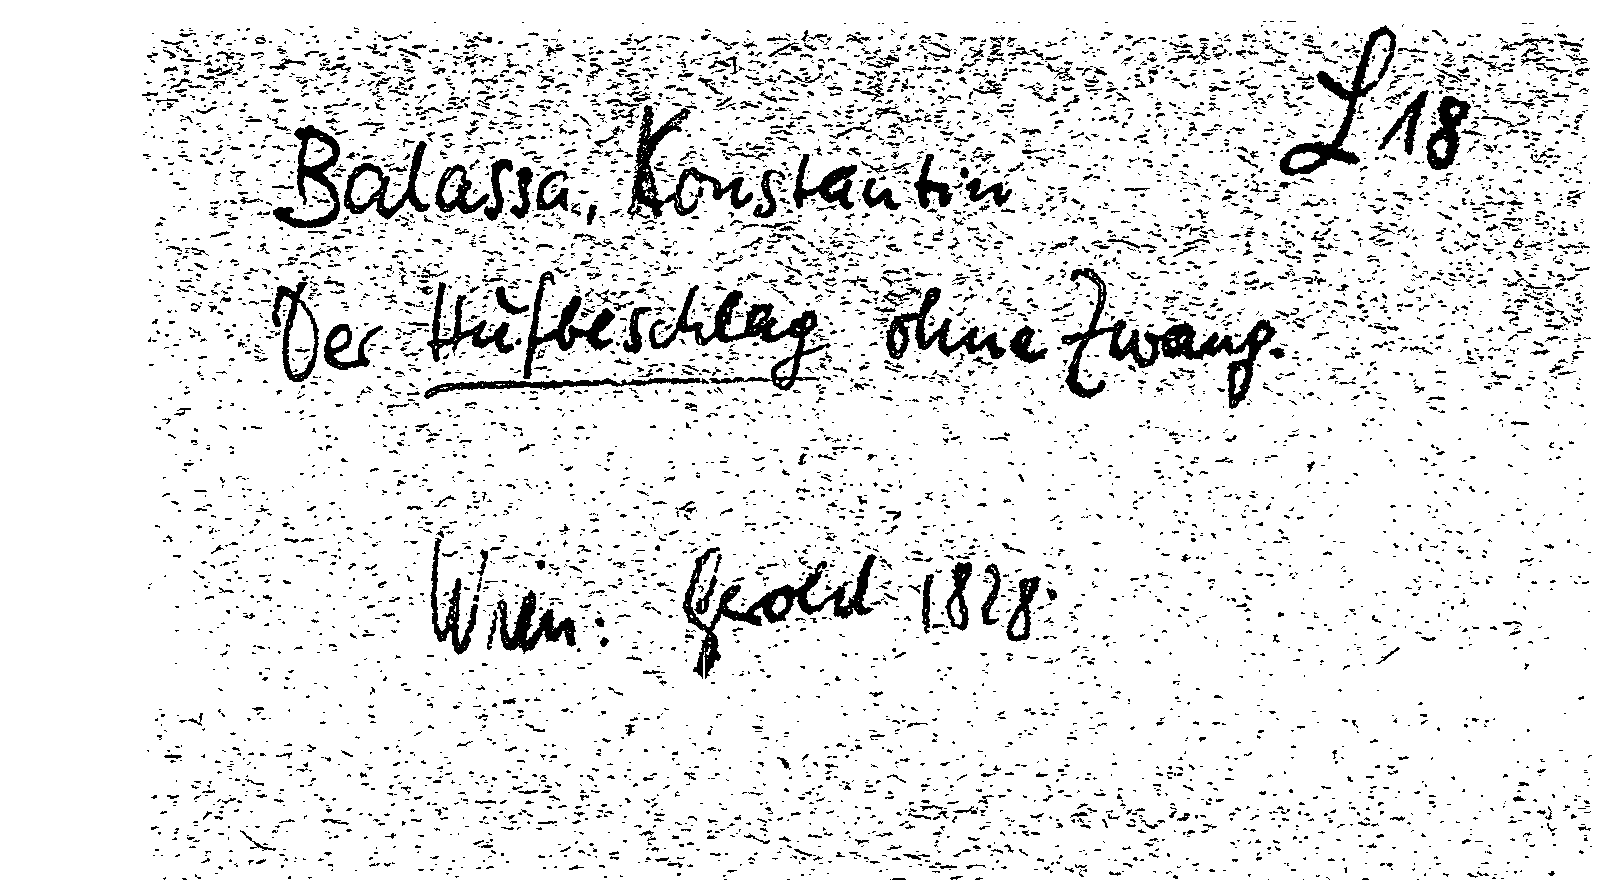 L 18
Balassa, Konstantin
Der Hufbeschlag ohne Zwang.
Wien: Gerold 1828.